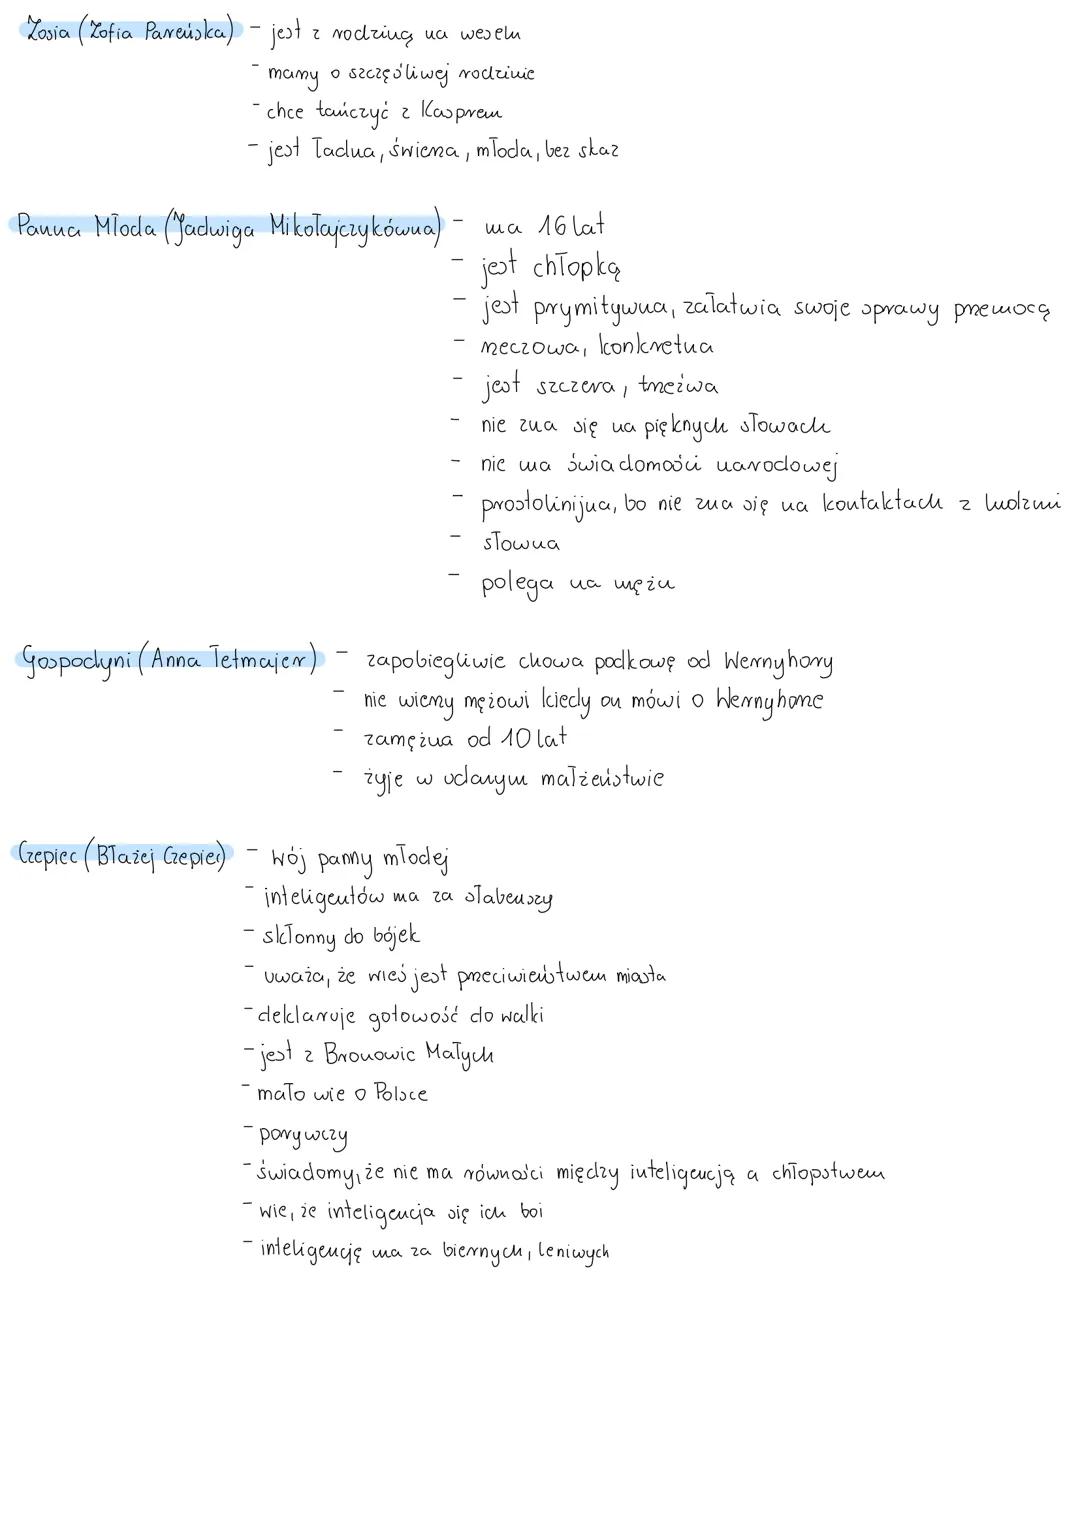 Zosia (Zofia Pareńska) - jest z rodziną na weselu
- marzy o szczęśliwej rodzinie
- chce tańczyć z Kasprem
- jest ładna, świeża, młoda, bez skaz
Panna Młoda (Jadwiga Mikołajczykówna) - ma 16 lat
- jest chłopką
- jest prymitywna, załatwia swoje sprawy przemocą
- rzeczowa, konkretna
- jest szczera, trzeźwa
- nie zna się na pięknych słowach
- nie ma świadomości narodowej
- prostolinijna, bo nie zna się na kontaktach z ludźmi
- słowna
- polega na mężu
Gospodyni (Anna Tetmajer) - zapobiegliwie chowa podkowę od Wernyhory
- nie wierzy mężowi kiedy on mówi o Wernyhorze
- zamężna od 10 lat
- żyje w udanym małżeństwie
Czepiec (Błażej Czepiec) - wój panny młodej
- inteligentów ma za słabeuszy
- skłonny do bójek
- uważa, że wieś jest przeciwieństwem miasta
- deklaruje gotowość do walki
- jest z Bronowic Małych
- mało wie o Polsce
- porywczy
- świadomy, że nie ma równości między inteligencją a chłopstwem
- wie, że inteligencja się ich boi
- inteligencję ma za biernych, leniwych